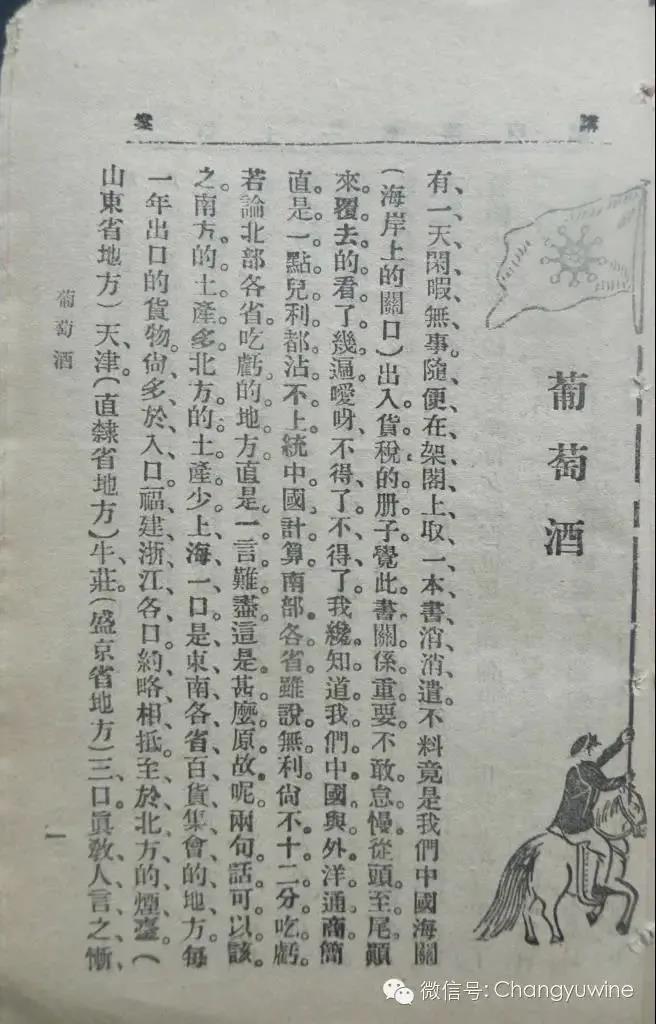 講
葡萄酒
有一天閑暇無事隨便在架閣上取一本書消消遣不料竟是我們中國海關
(海岸上的關口)出入貨稅的册子覺此書關係重要不敢怠慢從頭至尾顚
來覆去的看了幾遍噯呀不得了不得了我纔知道我們中國與外洋通商簡
直是一點兒利都沾不上統中國計算南部各省雖說無利尙不十二分吃虧
若論北部各省吃虧的地方直是一言難盡這是甚麼原故呢兩句話可以該
之南方的土產多北方的土產少上海一口是東南各省百貨集會的地方每
一年出口的貨物尙多於入口福建浙江各口約略相抵至於北方的煙臺(
山東省地方)天津(直隸省地方)牛莊(盛京省地方)三口眞敎人言之慚
葡萄酒
一
微信号: Changyuwine